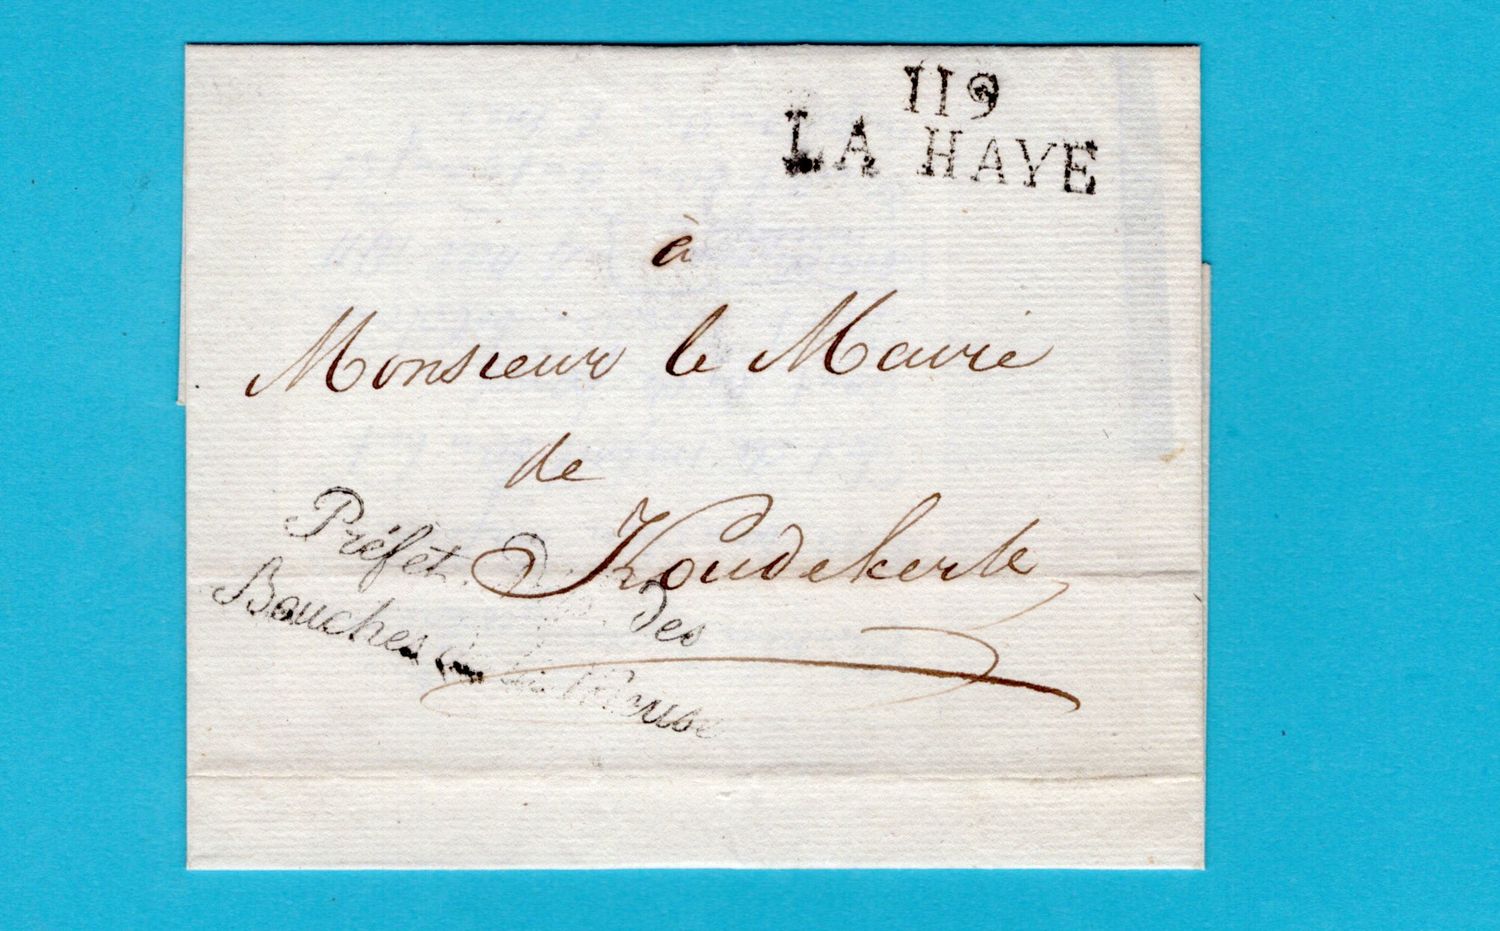 119
LA HAYE
à
Monsieur le Maire
de
Koudekerk
Préfet des
Bouches de la Meuse